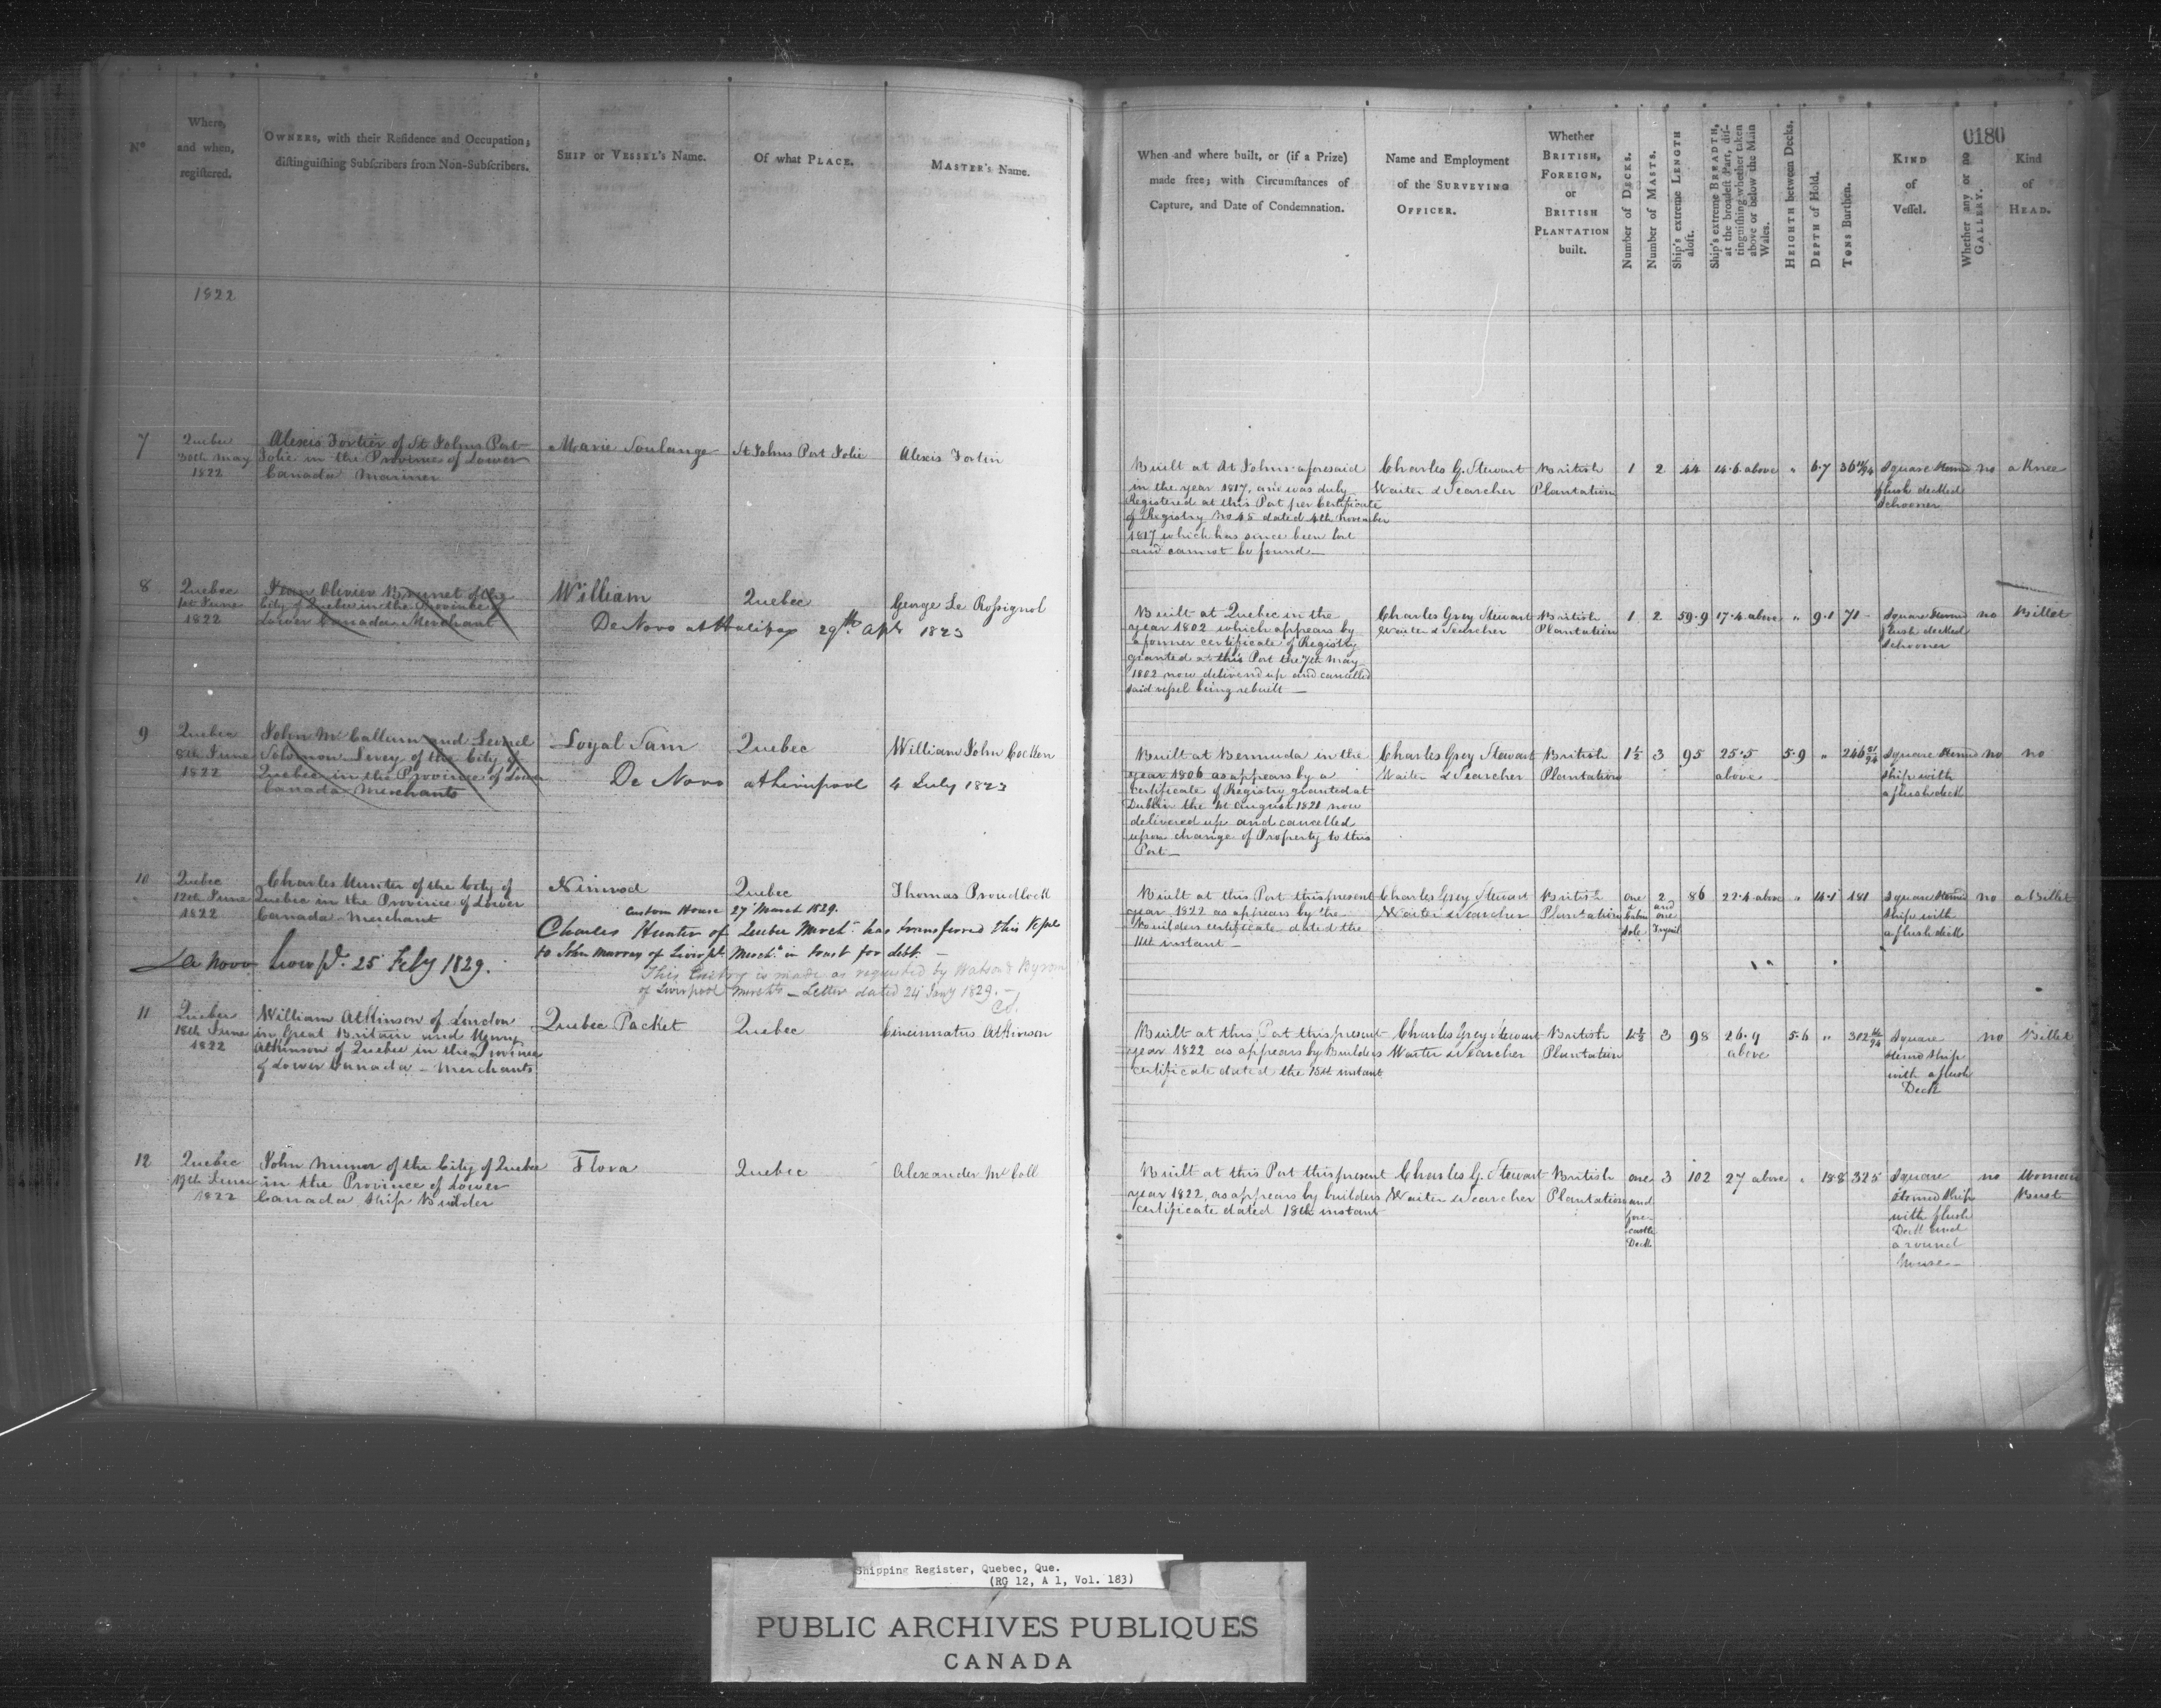 0180
No
Where,
and when,
registered.
OWNERS, with their Residence and Occupation;
distinguishing Subscribers from Non-Subscribers.
SHIP or VESSEL'S Name.
Of what PLACE.
MASTER'S Name.
When and where built, or (if a Prize)
made free; with Circumstances of
Capture, and Date of Condemnation.
Name and Employment
of the SURVEYING
OFFICER.
Whether
BRITISH,
FOREIGN,
or
BRITISH
PLANTATION
built.
Number of DECKS.
Number of MASTS.
Ship's extreme LENGTH
aloft.
Ship's extreme BREADTH,
at the broadest Part, dis-
tinguishing whether taken
above or below the Main
Wales.
HEIGHTH between Decks.
DEPTH of Hold.
TONS Burthen.
KIND
of
Vessel.
Whether any or no
GALLERY.
Kind
of
HEAD.
1822
7
Quebec
30th May
1822
Alexis Fortier of St Johns Port
Jolie in the Province of Lower
Canada Mariner
Marie Soulange
St Johns Port Jolie
Alexis Fortin
Built at St Johns aforesaid
in the year 1817, and was duly
Registered at this Port per Certificate
of Registry No 45 dated 4th November
1817 which has since been lost
and cannot be found
Charles G. Stewart
Waiter & Searcher
British
Plantation
1
2
44
14.6 above
"
6.7
36
Square Sternd
flush decked
Schooner
no
a Knee
8
Quebec
1st June
1822
Jean Olivier Brunet of the
City of Quebec in the Province of
Lower Canada Merchant
William
Quebec
George Le Rossignol
De Novo at Halifax 29th Apl 1823
Built at Quebec in the
year 1802 which appears by
a former certificate of Registry
granted at this Port the 7th May
1802 now delivered up and cancelled
said vessel being rebuilt
Charles Grey Stewart
Waiter & Searcher
British
Plantation
1
2
59.9
17.4 above
"
9.1
71
Square Sternd
flush decked
Schooner
no
Billet
9
Quebec
8th June
1822
John McCallum and Lemel
Solomon Levey of the City of
Quebec in the Province of Lower
Canada Merchants
Loyal Sam
Quebec
William John Cocken
De Novo at Liverpool 4 July 1823
Built at Bermuda in the
year 1806 as appears by a
Certificate of Registry granted at
Dublin the 1st August 1821 now
delivered up and cancelled
upon change of Property to this
Port
Charles Grey Stewart
Waiter & Searcher
British
Plantation
1½
3
95
25.5
above
5.9
"
246
Square Sternd
Ship with
a flush deck
no
no
10
Quebec
12th June
1822
Charles Hunter of the City of
Quebec in the Province of Lower
Canada Merchant
Nimrod
Quebec
Thomas Proudlock
Custom House 27 March 1829.
Charles Hunter of Quebec Mercht has transferred this Vessel
to John Murray of Liverpl Mercht in trust for debt.
De Novo Liverpl. 25 Feby 1829.
This Entry is made as requested by Watson & Byrom
of Liverpool Merchts - Letter dated 24 Jany 1829.
Built at this Port this present
year 1822 as appears by the
Builders certificate dated the
11th instant
Charles Grey Stewart
Waiter & Searcher
British
Plantation
one
2
and
one
86
22.4 above
"
181
Square Sternd
Ship with
a flush deck
no
a Billet
11
Quebec
18th June
1822
William Atkinson of London
in Great Britain and Henry
Atkinson of Quebec in the Province
of Lower Canada - Merchants
Quebec Packet
Quebec
Cincinnatus Atkinson
Built at this Port this present
year 1822 as appears by Builders
certificate dated the 15th instant
Charles Grey Stewart
Waiter & Searcher
British
Plantation
1½
3
98
26.9
above
5.6
"
302
Square
Sternd Ship
with a flush
Deck
no
Billet
12
Quebec
19th June
1822
John Munn of the City of Quebec
in the Province of Lower
Canada Ship Builder
Flora
Quebec
Alexander McColl
Built at this Port this present
year 1822, as appears by builders
certificate dated 18th instant
Charles G. Stewart
Waiter & Searcher
British
Plantation
one
and
fore-
castle
Deck
3
102
27 above
18.8
325
Square
Sternd Ship
with flush
Deck and
a round
House
no
Woman
Bust
Shipping Register, Quebec, Que.
(RG 12, A 1, Vol. 183)
PUBLIC ARCHIVES PUBLIQUES
CANADA